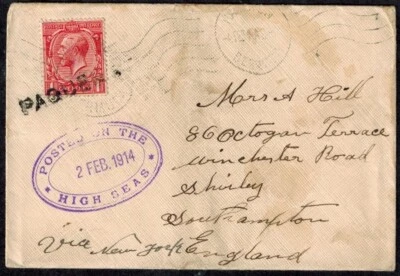 PAQUEBOT
POSTED ON THE
2 FEB. 1914
HIGH SEAS
Mrs A Hill
86 Octogan Terrace
Winchester Road
Shirley
Southampton
England
Via New York